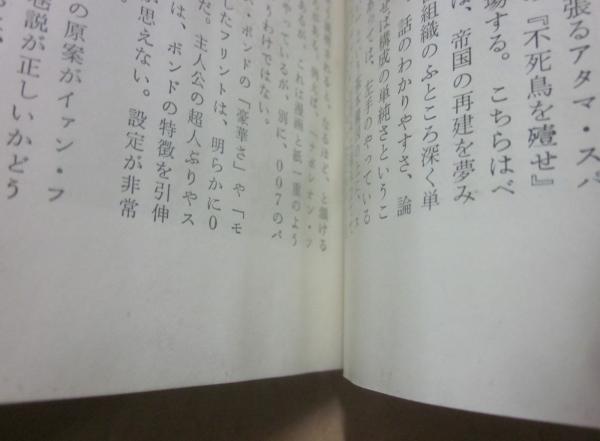 張るアタマ・スパ
『不死鳥を殪せ』
場する。こちらはべ
、帝国の再建を夢み
組織のふところ深く単
話のわかりやすさ、論
せば構成の単純さというこ
あっては、左手のやっている
なるほど、と頷ける
がある。例えば、『ナポレオン・ソ
あるが、これは漫画と紙一重のよう
やっているが、別に、007のパ
うわけではない。
・ボンドの「豪華さ」や「モ
したフリントは、明らかに0
だ。主人公の超人ぶりやス
は、ボンドの特徴を引伸
か思えない。設定が非常
の原案がイアン・フ
巷説が正しいかどう